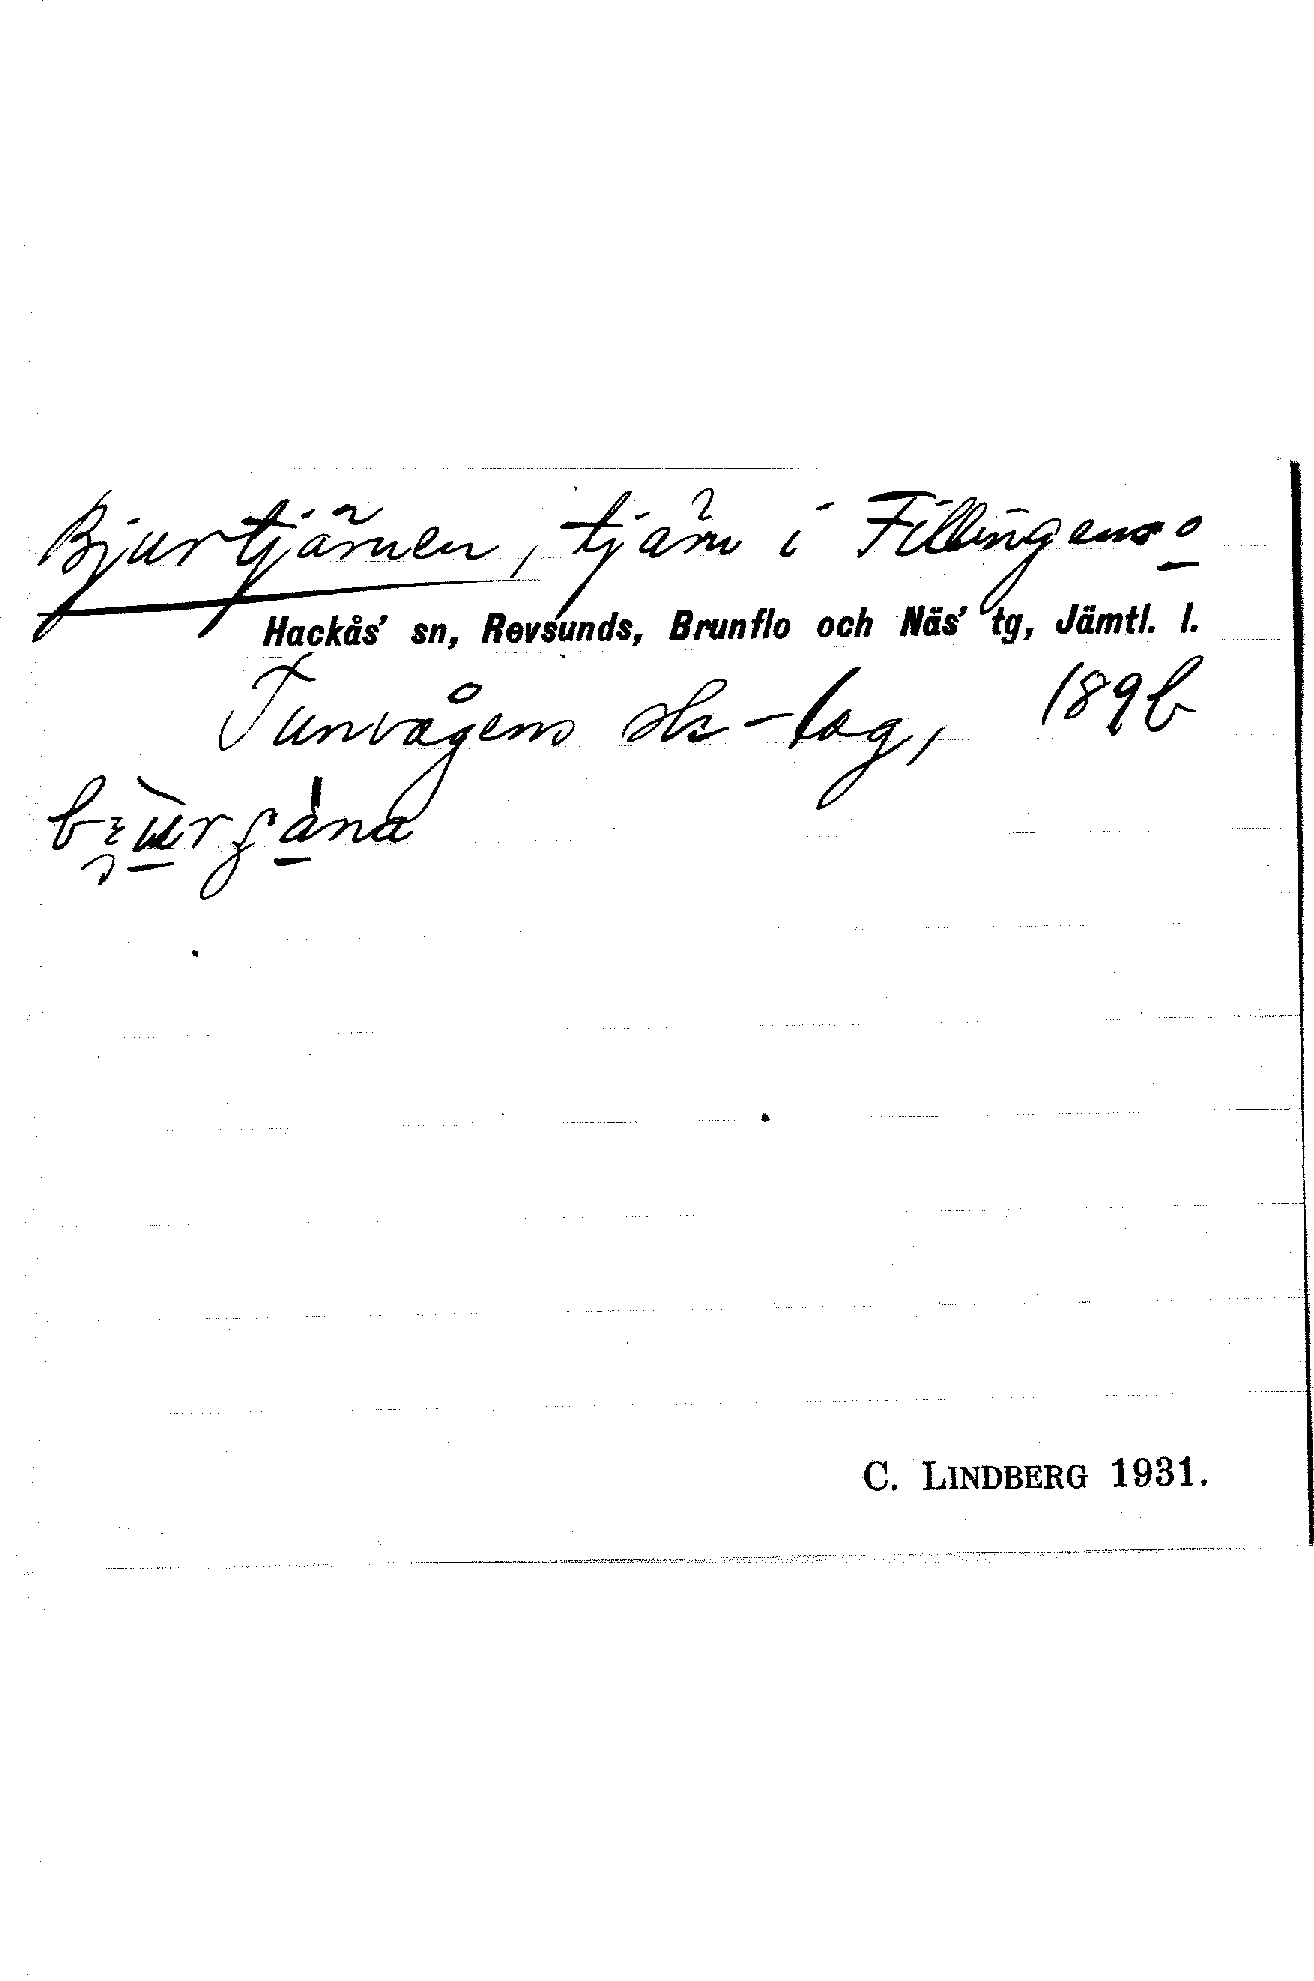 Bjurtjärnen, tjärn i Fillingens o
Hackås' sn, Revsunds, Brunflo och Näs' tg, Jämtl. l.
Tunvågens sk-lag, 189b
C. LINDBERG 1931.